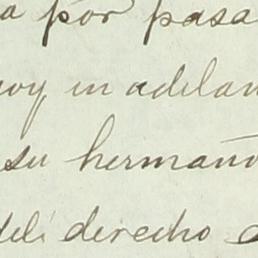 a por pasa
oy in adelan
su hermano
del derecho